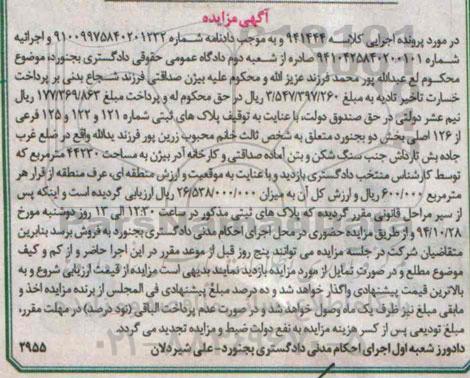 آگهی مزایده
در مورد پرونده اجرایی کلاسه ۹۴۱۴۴۴ و به موجب دادنامه شماره ۹۱۰۰۹۹۷۵۸۴۰۲۰۱۲۳۲ و اجرائیه
شماره ۹۴۱۰۴۲۵۸۴۰۲۰۰۱۰۱ صادره از شعبه دوم دادگاه عمومی حقوقی دادگستری بجنورد، موضوع
محکوم لع عبدالله پور محمد فرزند عزیز الله و محکوم علیه بیژن صداقتی فرزند شجاع بدنی بر پرداخت
خسارت تاخیر تادیه به مبلغ ۳/۵۴۷/۳۹۷/۲۶۰ ریال در حق محکوم له و پرداخت مبلغ ۱۷۷/۳۶۹/۸۶۳ ریال
نیم عشر دولتی در حق صندوق دولت، با عنایت به توقیف پلاک های ثبتی شماره ۱۲۱ و ۱۲۲ و ۱۲۵ فرعی
از ۱۲۶ اصلی بخش دو بجنورد متعلق به شخص ثالث خانم محبوب زرین پور فرزند یدالله واقع در ضلع غرب
جاده بش تارداش جنب سنگ شکن و بتن آماده صداقتی و کارخانه آذر بیژن به مساحت ۴۴۲۳۰ مترمربع که
توسط کارشناس منتخب دادگستری بازدید و با عنایت به موقعیت و ارزش منطقه ای، عرف منطقه از قرار هر
مترمربع ۶۰۰/۰۰۰ ریال و ارزش کل آن به میزان ۲۶/۵۳۸/۰۰۰/۰۰۰ ریال ارزیابی گردیده است و اینکه پس
از سیر مراحل قانونی مقرر گردیده که پلاک های ثبتی مذکور در ساعت ۱۲:۲۰ الی ۱۳ روز دوشنبه مورخ
۹۴/۱۰/۲۸ و از طریق مزایده حضوری در محل اجرای احکام مدنی دادگستری بجنورد به فروش برسد بنابرین
متقاضیان شرکت در جلسه مزایده می توانند پنج روز قبل از موعد مقرر در این اجرا حاضر و از کم و کیف
موضوع مطلع و در صورت تمایل از مورد مزایده بازدید نمایند بدیهی است مزایده از قیمت ارزیابی شروع و به
بالاترین قیمت پیشنهادی واگذار خواهد شد و ده درصد مبلغ پیشنهادی فی المجلس از برنده مزایده اخذ و
مابقی مبلغ نیز ظرف یک ماه وصول خواهد شد و در صورت عدم پرداخت الباقی (نود درصد) در مهلت مقرر،
مبلغ تودیعی پس از کسر هزینه مزایده به نفع دولت ضبط و مزایده تجدید می گردد.
دادورز شعبه اول اجرای احکام مدنی دادگستری بجنورد-علی شیردلان ۲۹۵۵